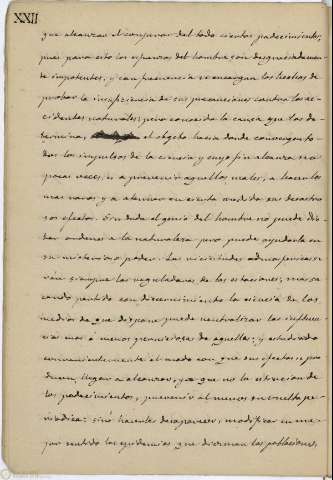 XXII
que alcanzar el conjurar del todo ciertos padecimientos,
pues para esto los esfuerzos del hombre son desgraciadamen-
te impotentes, y con frecuencia se encargan los hechos de
probar la insuficiencia de sus precauciones contra los ac-
cidentes naturales; pero conocida la causa que los de-
termina, el objeto hacia donde convergen to-
dos los impulsos de la ciencia y cuyo fin alcanza no
pocas veces, es a prevenir aquellos males, a hacerlos
mas raros y a atenuar en cierta medida sus desastro-
sos efectos. Sin duda el genio del hombre no puede dic-
tar ordenes a la naturaleza pero puede ayudarla en
su misterioso poder. Las vicisitudes admosfericas se-
rán siempre las reguladoras de las estaciones; mas sa-
cando partido con discernimiento la ciencia de los
medios de que dispone puede neutralizar las influen-
cias mas ó menos perniciosas de aquellas; y estudiado
convenientemente el modo con que sus efectos se pro-
ducen, llegar a alcanzar, ya que no la estincion de
los padecimientos, prevenir al menos su vuelta pe-
riodica: sinó hacerles desaparecer, modificar en me-
jor sentido las epidemias que diezman las poblaciones,